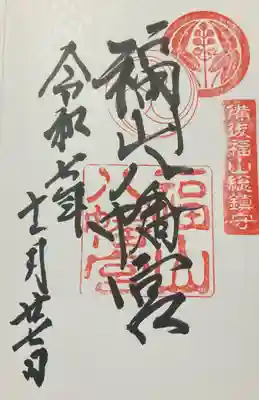 備後福山総鎮守
福山八幡宮
福山
八幡宮
令和七年
十一月廿七日